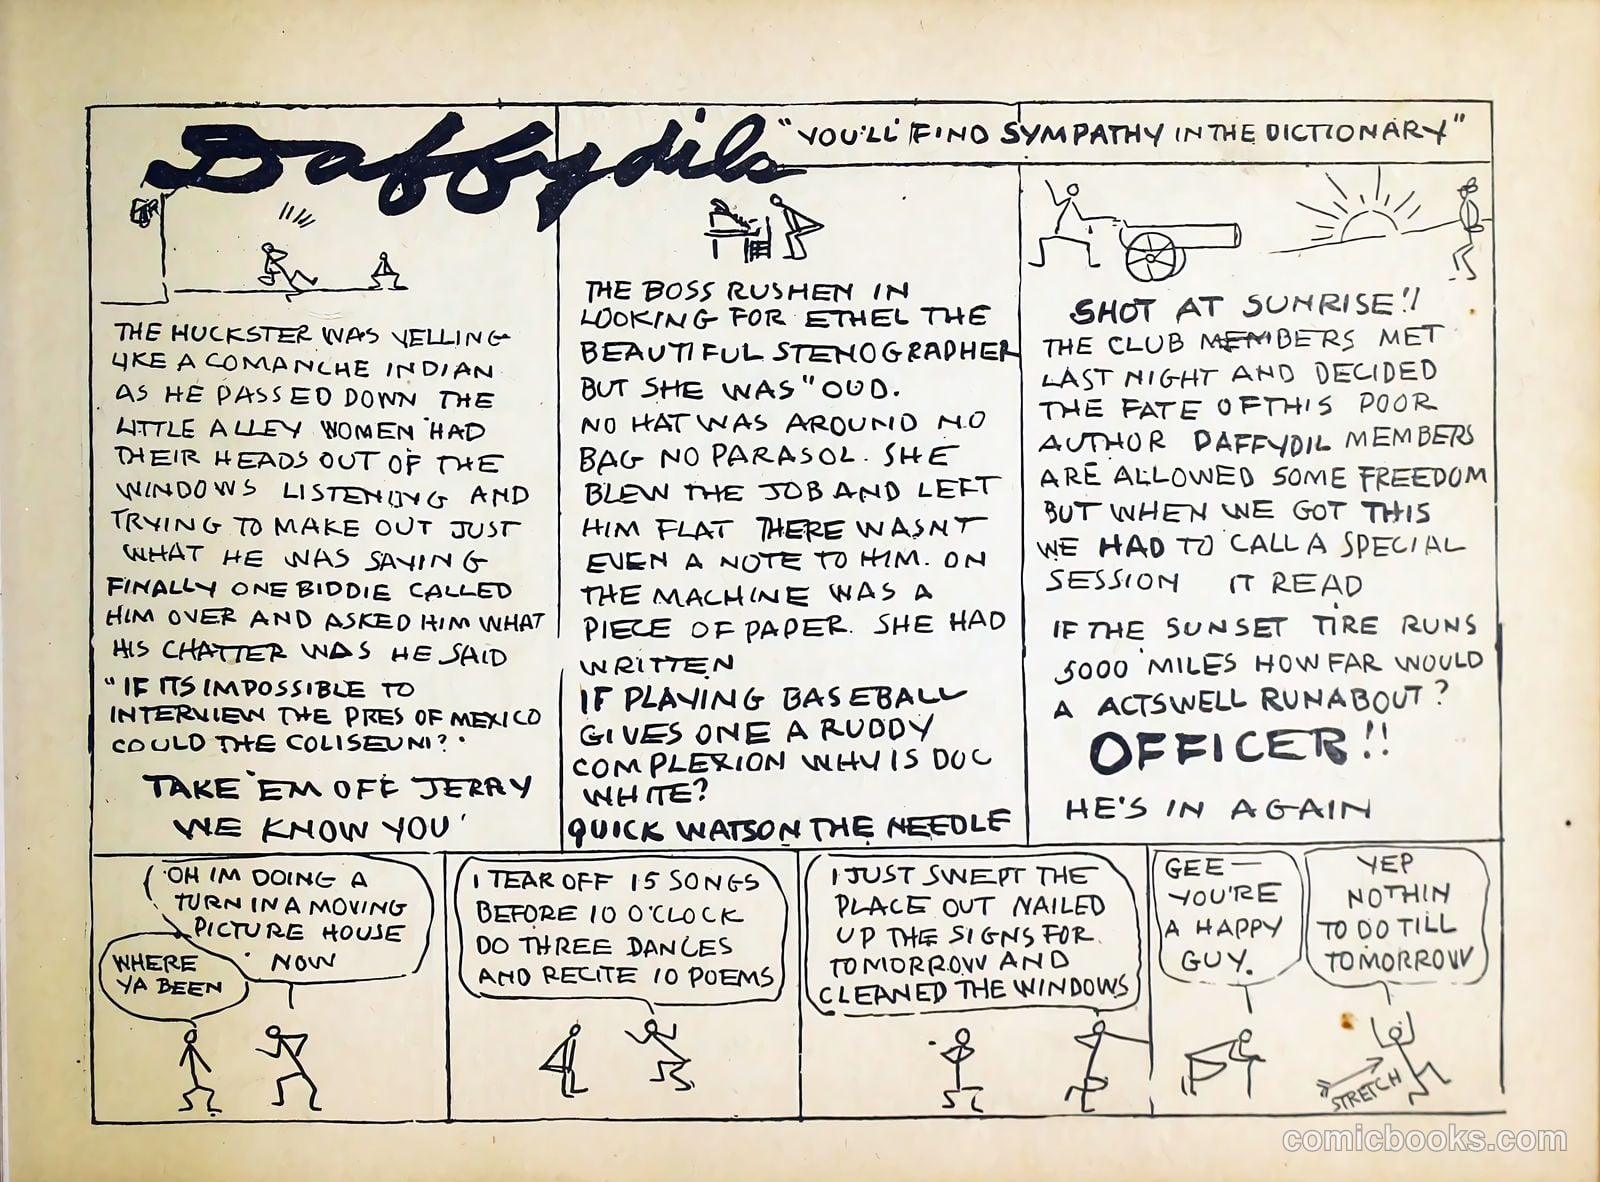 Daffydils
"YOU'LL FIND SYMPATHY IN THE DICTIONARY"
THE HUCKSTER WAS YELLING
LIKE A COMANCHE INDIAN
AS HE PASSED DOWN THE
LITTLE ALLEY WOMEN HAD
THEIR HEADS OUT OF THE
WINDOWS LISTENING AND
TRYING TO MAKE OUT JUST
WHAT HE WAS SAYING
FINALLY ONE BIDDIE CALLED
HIM OVER AND ASKED HIM WHAT
HIS CHATTER WAS HE SAID
"IF ITS IMPOSSIBLE TO
INTERVIEW THE PRES OF MEXICO
COULD THE COLISEUM?"
TAKE 'EM OFF JERRY
WE KNOW YOU'
THE BOSS RUSHEN IN
LOOKING FOR ETHEL THE
BEAUTIFUL STENOGRAPHER
BUT SHE WAS "OUD.
NO HAT WAS AROUND NO
BAG NO PARASOL. SHE
BLEW THE JOB AND LEFT
HIM FLAT THERE WASNT
EVEN A NOTE TO HIM. ON
THE MACHINE WAS A
PIECE OF PAPER. SHE HAD
WRITTEN
IF PLAYING BASEBALL
GIVES ONE A RUDDY
COMPLEXION WHY IS DOC
WHITE?
QUICK WATSON THE NEEDLE
SHOT AT SUNRISE!!
THE CLUB MEMBERS MET
LAST NIGHT AND DECIDED
THE FATE OF THIS POOR
AUTHOR DAFFYDIL MEMBERS
ARE ALLOWED SOME FREEDOM
BUT WHEN WE GOT THIS
WE HAD TO CALL A SPECIAL
SESSION IT READ
IF THE SUNSET TIRE RUNS
5000 MILES HOW FAR WOULD
A ACTSWELL RUNABOUT?
OFFICER!!
HE'S IN AGAIN
WHERE
YA BEEN
OH IM DOING A
TURN IN A MOVING
PICTURE HOUSE
NOW
I TEAR OFF 15 SONGS
BEFORE 10 O'CLOCK
DO THREE DANCES
AND RECITE 10 POEMS
I JUST SWEPT THE
PLACE OUT NAILED
UP THE SIGNS FOR
TOMORROW AND
CLEANED THE WINDOWS
GEE—
YOU'RE
A HAPPY
GUY.
YEP
NOTHIN
TO DO TILL
TOMORROW
STRETCH
comicbooks.com